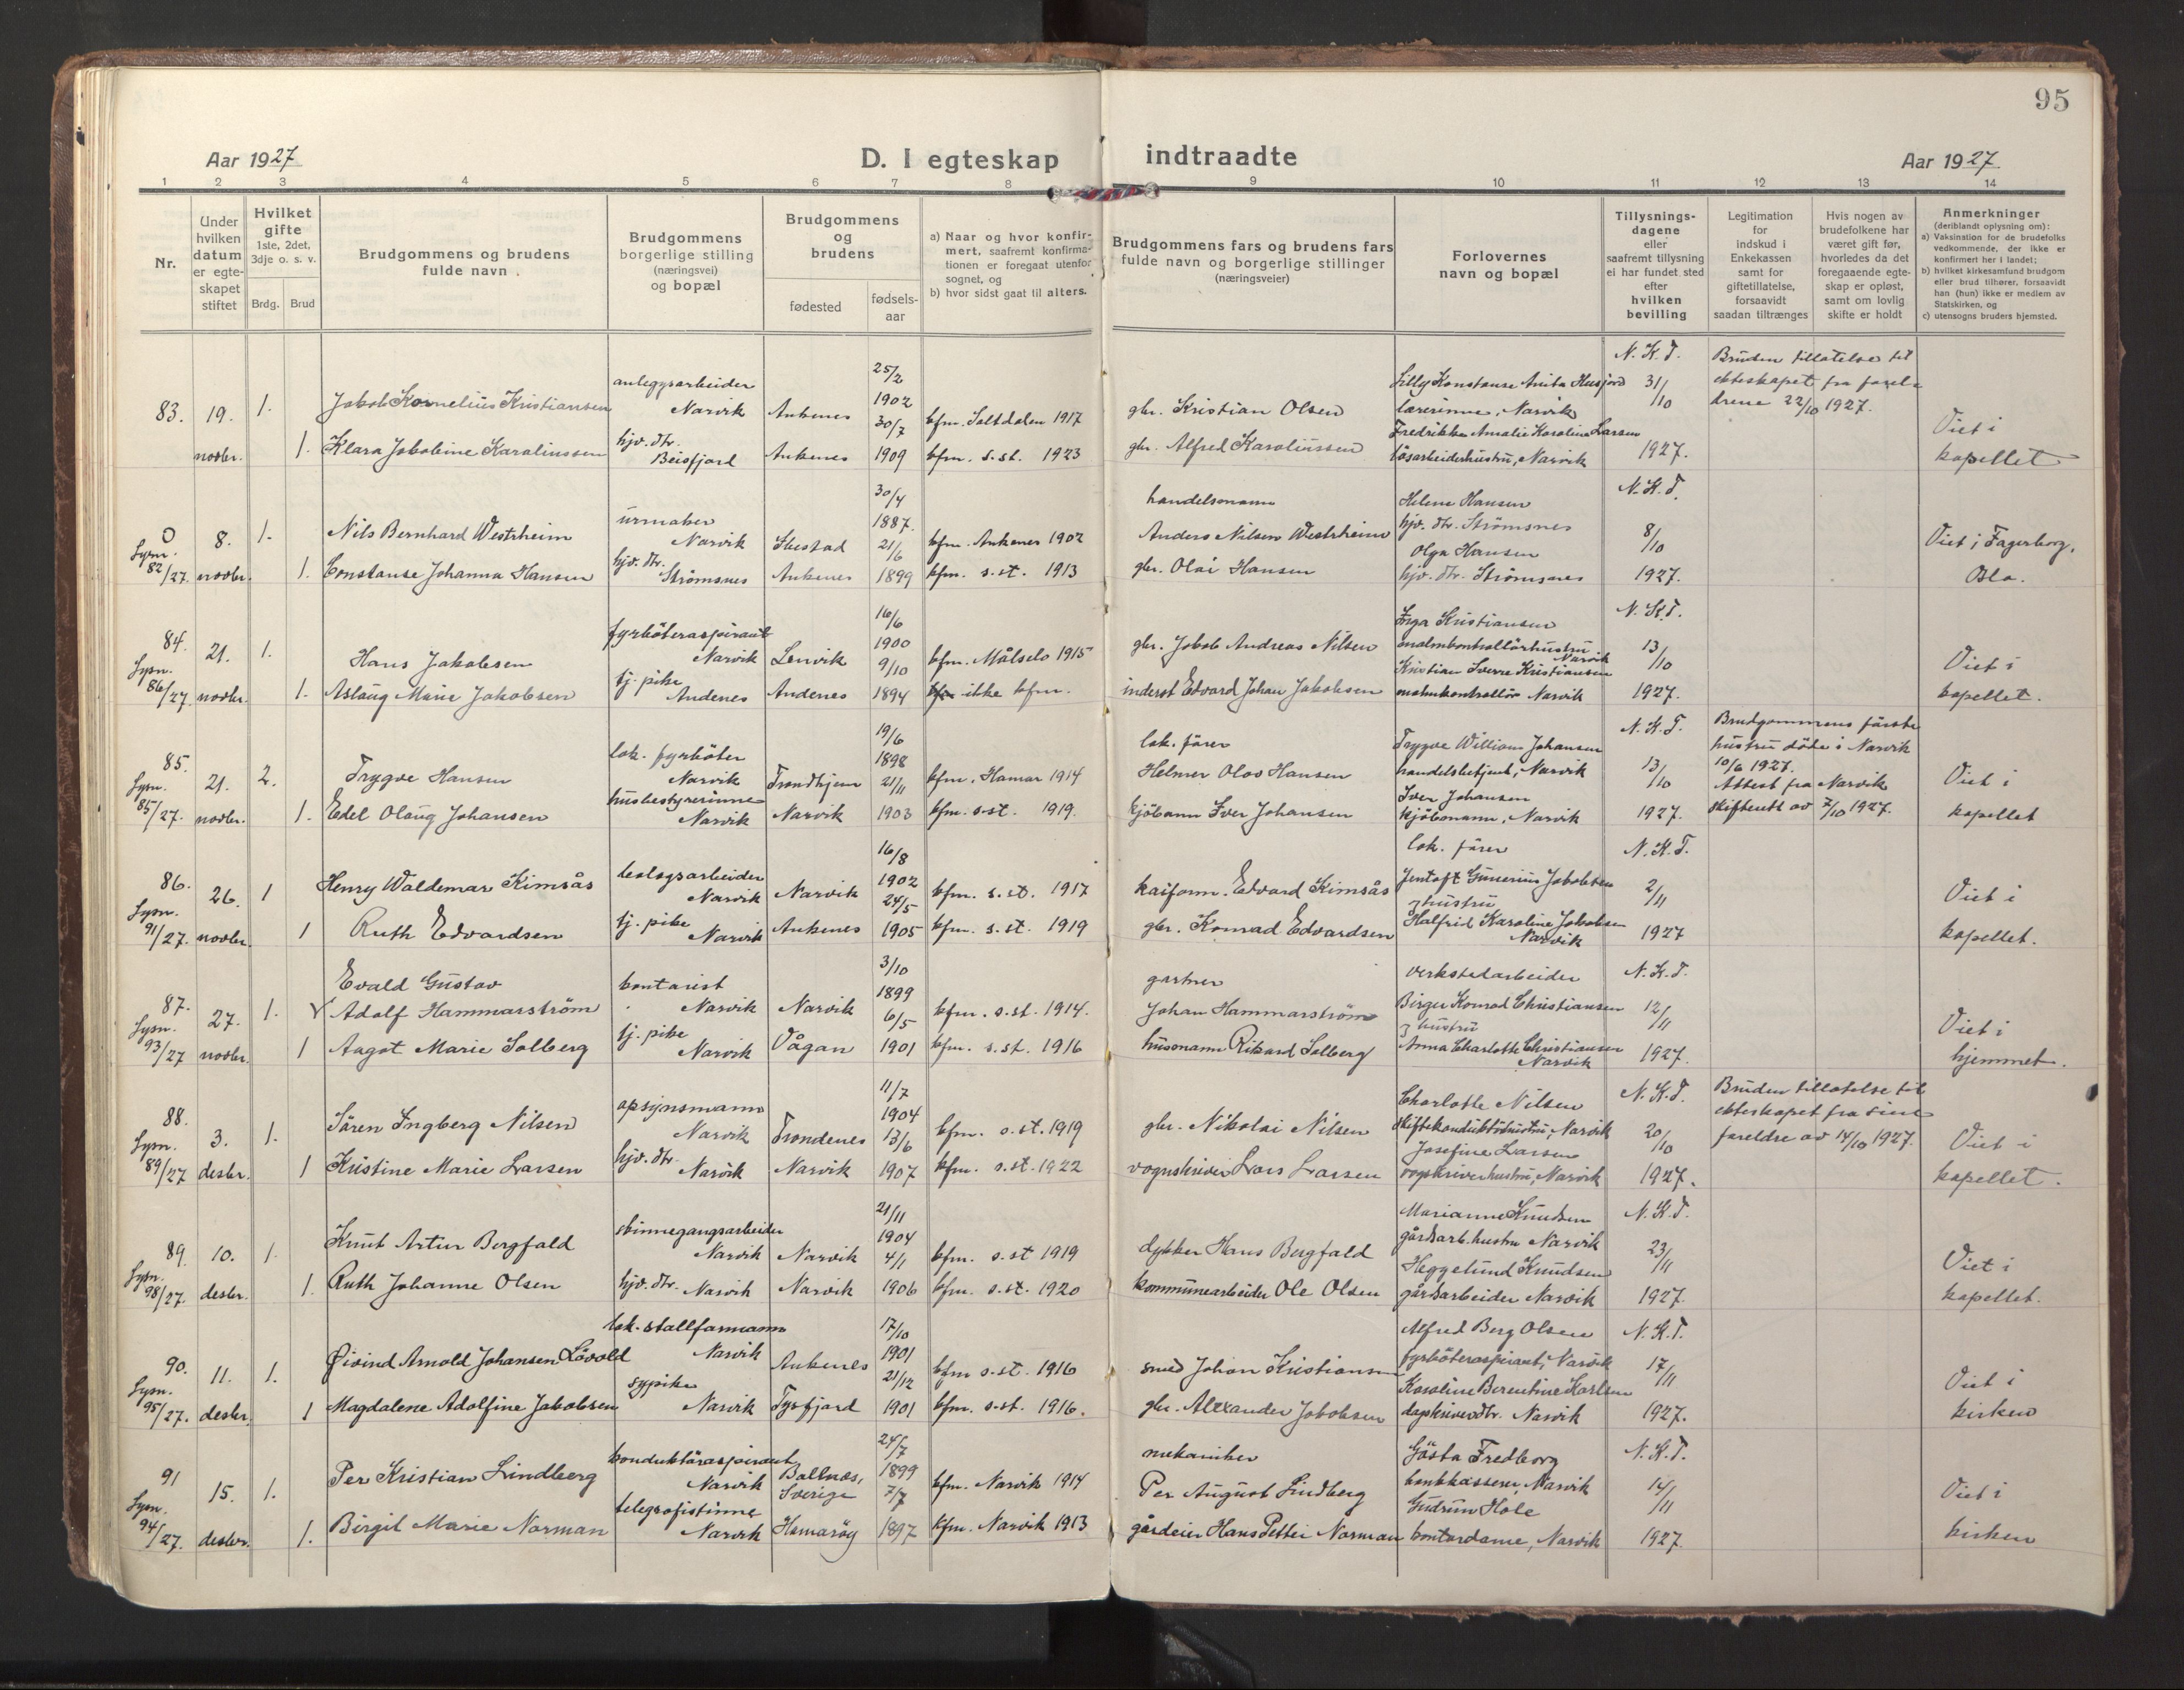 95
Aar 1927
D. I egteskap indtraadte
Aar 1927
1 2 3 4 5 6 7 8 9 10 11 12 13 14
Nr.
Under hvilken datum er egte-skapet stiftet
Hvilket gifte
1ste, 2det, 3dje o. s. v.
Brdg. Brud
Brudgommens og brudens fulde navn
Brudgommens borgerlige stilling (næringsvei) og bopæl
Brudgommens og brudens
fødested
fødsels-aar
a) Naar og hvor konfir-mert, saafremt konfirma-tionen er foregaat utenfor sognet, og
b) hvor sidst gaat til alters.
Brudgommens fars og brudens fars fulde navn og borgerlige stillinger (næringsveier)
Forlovernes navn og bopæl
Tillysnings-dagene eller saafremt tillysning ei har fundet sted efter hvilken bevilling
Legitimation for indskud i Enkekassen samt for giftetillatelse, forsaavidt saadan tiltrænges
Hvis nogen av brudefolkene har været gift før, hvorledes da det foregaaende egte-skap er opløst, samt om lovlig skifte er holdt
Anmerkninger (deriblandt oplysning om):
a) Vaksination for de brudefolks vedkommende, der ikke er konfirmert her i landet;
b) hvilket kirkesamfund brudgom eller brud tilhører, forsaavidt han (hun) ikke er medlem av Statskirken, og
c) utensogns bruders hjemsted.
83. 19. novbr. 1. Jakob Kornelius Kristiansen anleggsarbeider Narvik Ankenes 25/2 1902 kfm. Saltdalen 1917 gbr. Kristian Olsen Lilly Konstanse Anita Husjord lærerinne, Narvik N.K.T. 31/10 Bruden tillatelse til ekteskapet fra forel-drene 22/10 1927.
1. Klara Jakobine Karolinssen hjv. dtr. Beisfjord Ankenes 30/7 1909 kfm. s.st. 1923 gbr. Alfred Karolinssen Fredrikke Amalie Karoline Larsen løsarbeiderhustru, Narvik 1927. Viet i kapellet
0 Lysn. 82/27. 8. novbr. 1. Nils Bernhard Westrheim urmaker Narvik Ibestad 30/4 1887. kfm. Ankenes 1902 handelsmann Anders Nilsen Westrheim Helene Hansen hjv. dtr. Strömsnes N.K.T. 8/10
1. Constanse Johanna Hansen hjv. dtr. Strömsnes Ankenes 21/6 1899 kfm. s.st. 1913 gbr. Olai Hansen Olga Hansen hjv. dtr. Strömsnes 1927. Viet i Fagerborg, Oslo.
84. Lysn. 86/27. 21. novbr. 1. Hans Jakobsen fyrböteraspirant Narvik Lenvik 16/6 1900 kfm. Målselv 1915 gbr. Jakob Andreas Nilsen Inga Kristiansen malmkontrollörhustru Narvik N.K.T. 13/10
1. Aslaug Marie Jakobsen tj. pike Andenes Andenes 9/10 1894 ikke kfm. inderst Edvard Johan Jakobsen Kristian Sverre Kristiansen malmkontrollör Narvik 1927. Viet i kapellet.
85. Lysn. 85/27. 21. novbr. 2. Trygve Hansen lok. fyrböter Narvik Trondhjem 19/6 1898 kfm. Hamar 1914 lok. förer Helmer Olas Hansen Trygve William Johansen handelsbetjent, Narvik N.K.T. 13/10 Brudgommens förste hustru döde i Narvik 10/6 1927. Attest fra Narvik skifterett av 7/10 1927.
1. Edel Olaug Johansen husbestyrerinne Narvik Narvik 21/11 1903 kfm. s.st. 1919. kjöbmann Iver Johansen Iver Johansen kjöbmann, Narvik 1927. Viet i kapellet
86. Lysn. 91/27. 26. novbr. 1 Henry Waldemar Kimsås Narvik Narvik 16/8 1902 kfm. s.st. 1917 kaiform. Edvard Kimsås lok. förer Jentoft Gunerius Jakobsen N.K.T. 2/11
1 Ruth Edvardsen tj. pike Narvik Ankenes 24/5 1905 kfm. s.st. 1919 gbr. Konrad Edvardsen & hustru Halfrid Karoline Jakobsen Narvik 1927 Viet i kapellet.
87. Lysn. 93/27 27. novbr. 1. Evald Gustav Adolf Hammarström kontorist Narvik Narvik 3/10 1899 kfm. s.st. 1914. gartner Johan Hammarström verkstedarbeider Birger Konrad Christiansen N.K.T. 12/11
1 Aagot Marie Solberg tj. pike Narvik Vågan 6/5 1901 kfm. s.st. 1916 husmann Rikard Solberg & hustru Anna Charlotte Christiansen Narvik 1927. Viet i hjemmet.
88. Lysn. 89/27 3. desbr. 1. Sören Ingberg Nilsen opsynsmann Narvik Trondenes 11/7 1904 kfm. s.st. 1919 gbr. Nikolai Nilsen Charlotte Nilsen skiftekonduktörhustru, Narvik N.K.T. 20/10 Bruden tillatelse til ekteskapet fra sine foreldre av 14/10 1927.
1 Kristine Marie Larsen hjv. dtr. Narvik Narvik 13/6 1907 kfm. s.st. 1922 vognskriver Lars Larsen Josefine Larsen vognskriverhustru, Narvik 1927. Viet i kapellet.
89. Lysn. 98/27. 10. desbr. 1. Knut Artur Bergfald skinnegangsarbeider Narvik Narvik 21/11 1904 kfm. s.st 1919 dykker Hans Bergfald Marianne Knudsen gårdsarb.hustru Narvik N.K.T. 23/11
1. Ruth Johanne Olsen hjv. dtr. Narvik Narvik 4/1 1906 kfm. s.st. 1920 kommunearbeider Ole Olsen Heggelund Knudsen gårdsarbeider Narvik 1927. Viet i kapellet.
90. Lysn. 95/27. 11. desbr. 1. Øivind Arnold Johansen Lövold lok. stallformann Narvik Ankenes 17/10 1901 kfm s.st. 1916 smed Johan Kristiansen Alfred Berg Olsen fyrböteraspirant, Narvik N.K.T. 17/11
1 Magdalene Adolfine Jakobsen sypike Narvik Tysfjord 21/12 1901 kfm. s.st. 1916. gbr. Alexander Jakobsen Karoline Berentine Karlsen dagskriverdtr. Narvik 1927. Viet i kirken
91 Lysn. 94/27. 15. desbr. 1. Per Kristian Lindberg konduktöraspirant Narvik Bollnäs, Sverige 24/7 1899 kfm. Narvik 1914 mekaniker Per August Lindberg Gösta Fredborg bankkasserer, Narvik N.K.T. 14/11
1. Birgit Marie Norman telegrafistinne Narvik Hamaröy 7/7 1897 kfm. Narvik 1913 gårdeier Hans Petter Norman Gudrun Hole kontordame, Narvik 1927. Viet i kirken